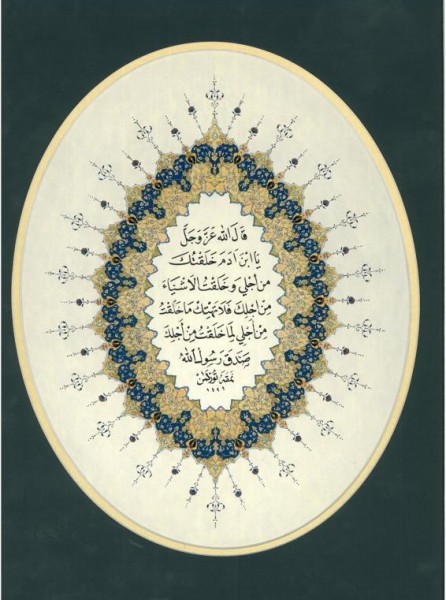 قَالَ اللهُ عَزَّ وَجَلَّ
يَا ابْنَ ادَمَ خَلَقْتُكَ
مِن اَجْلي وَخَلَقْتُ الْاَشْيَاءَ
مِنْ اَجْلِكَ فَلَا تَهْتِكْ مَا خَلَقْتُ
مِنْ اَجْلي لِمَا خَلَقْتُ مِنْ اَجْلِكَ
صَدَقَ رَسُولُ الله
نمقه